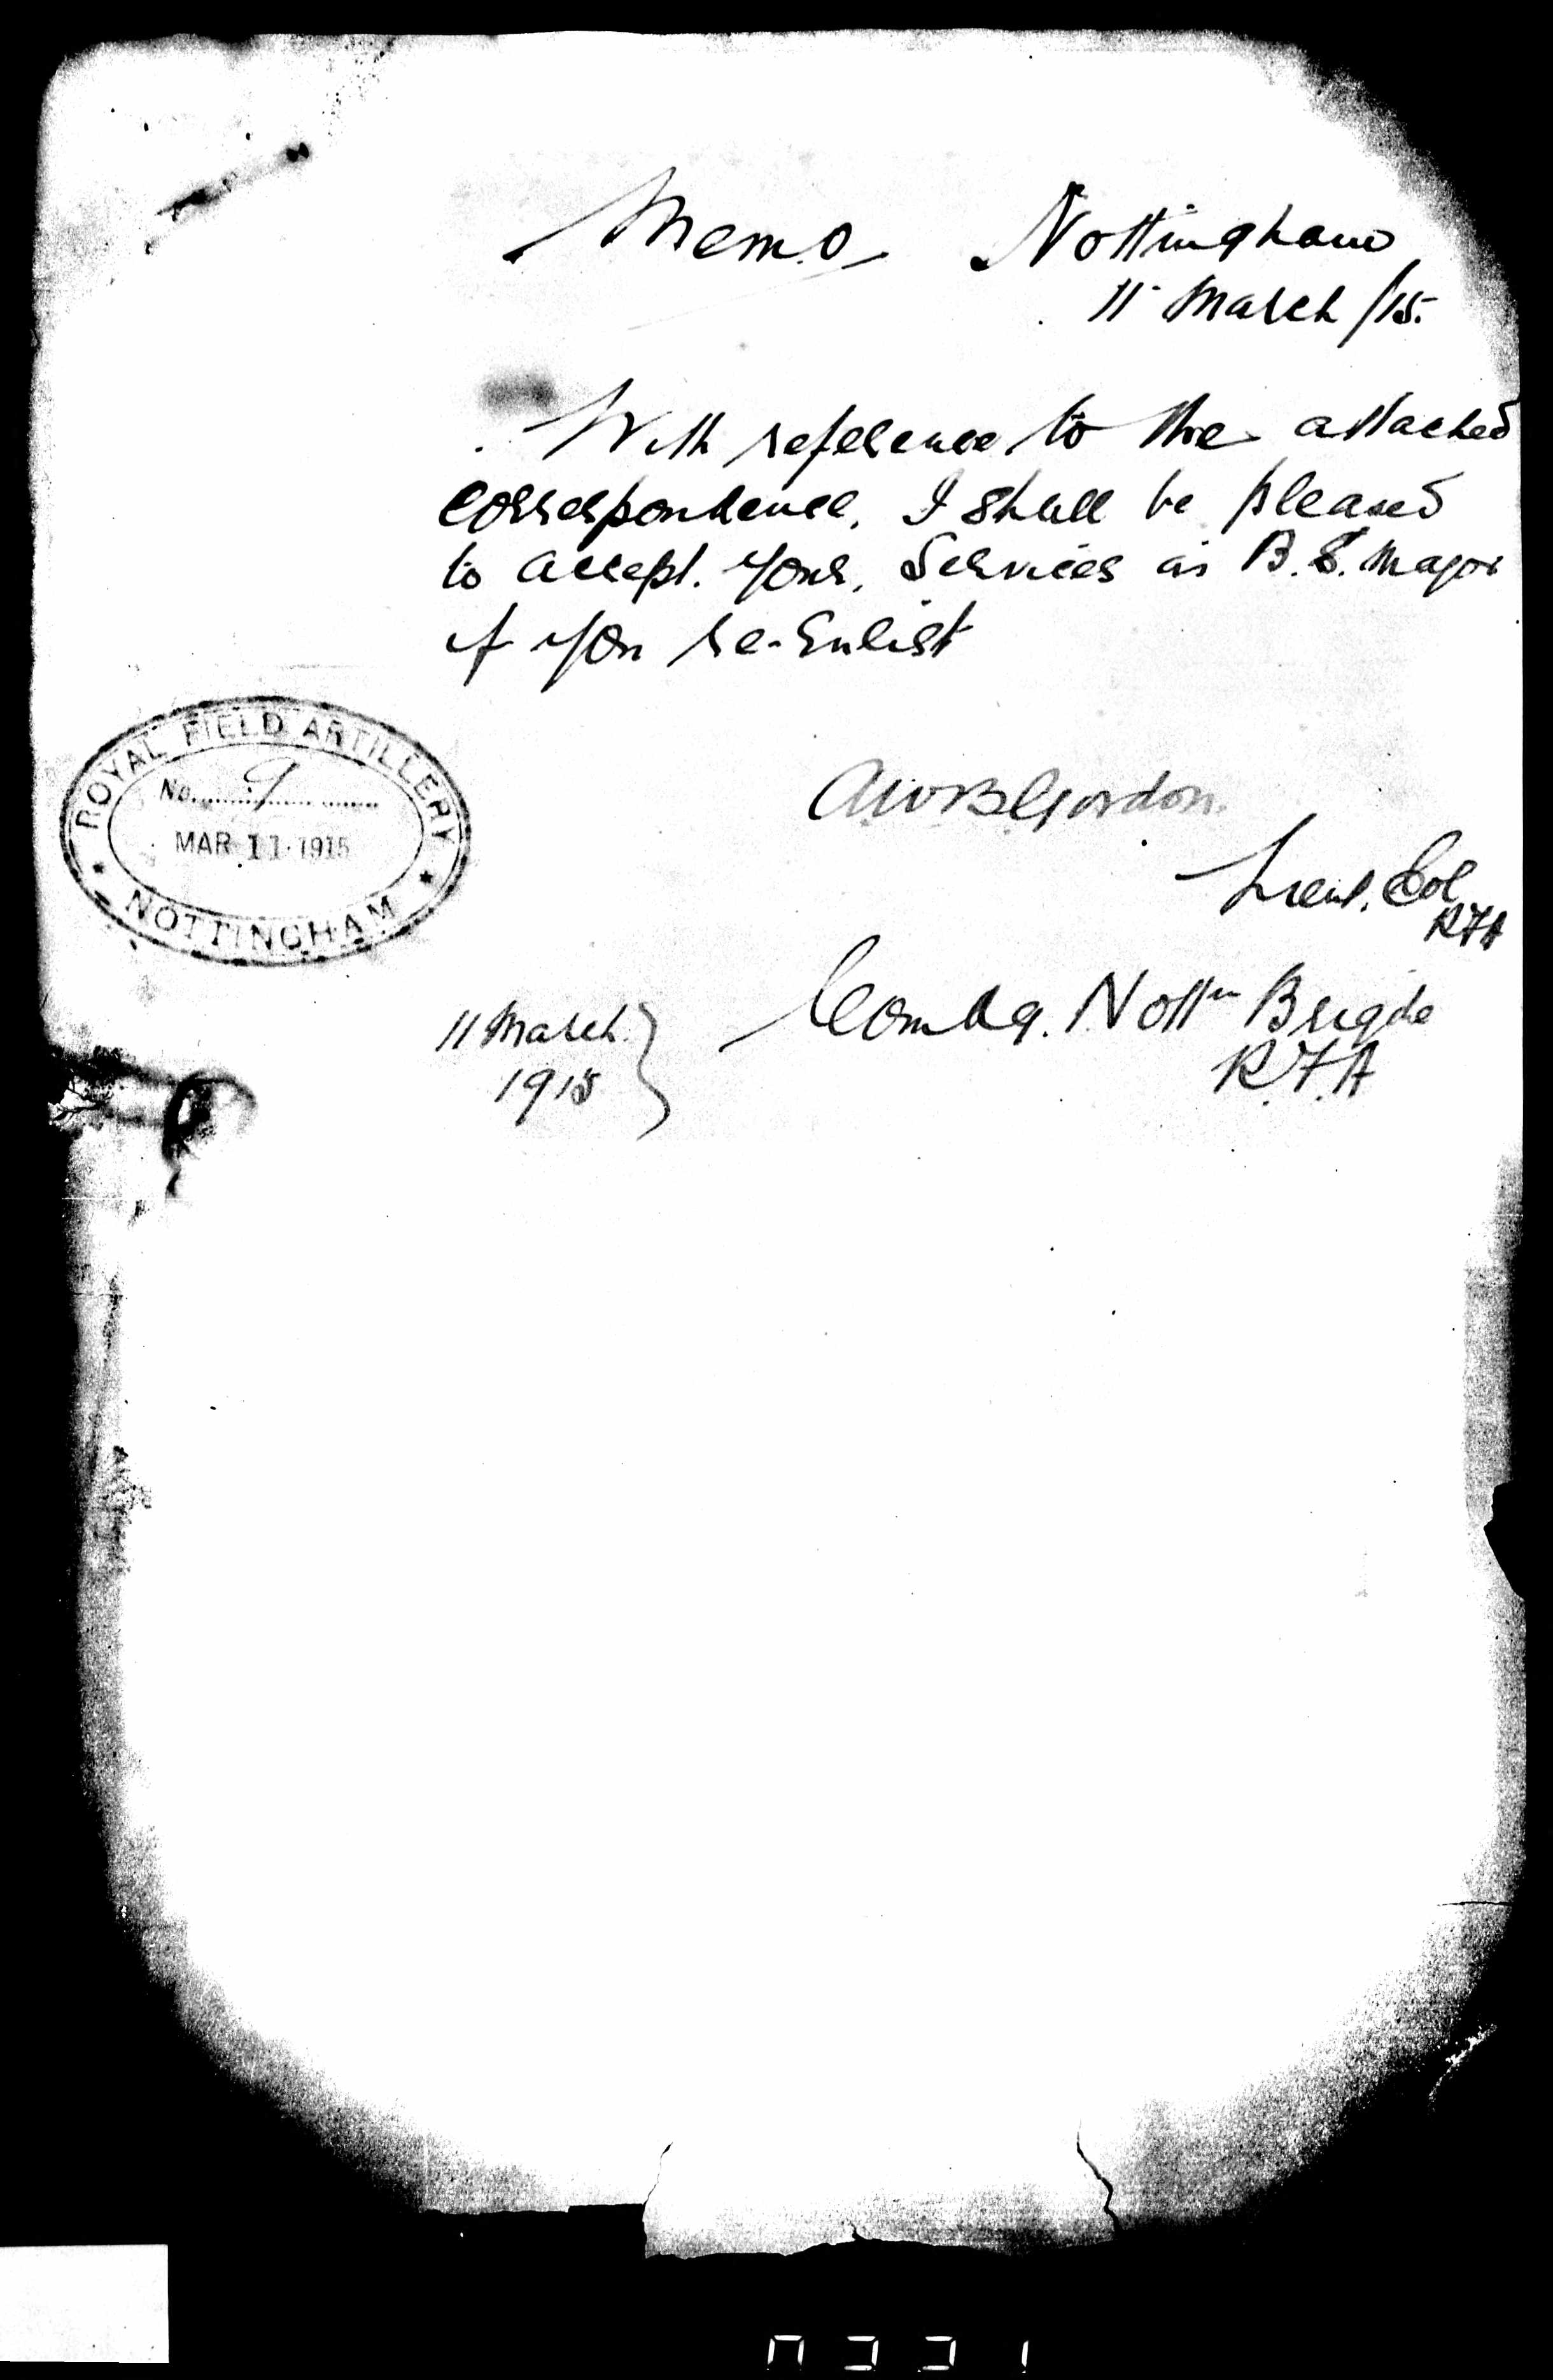 Memo Nottingham
11 March /15.
With reference to the attached
correspondence. I shall be pleased
to accept. your. Services as B.S. Major
if you re-Enlist
ROYAL FIELD ARTILLERY
No. 9
MAR 11 1915
NOTTINGHAM
AWBGordon.
Lieut. Col
RFA
11 March
1915
Comdg. Nottm Brigde
R.F.A